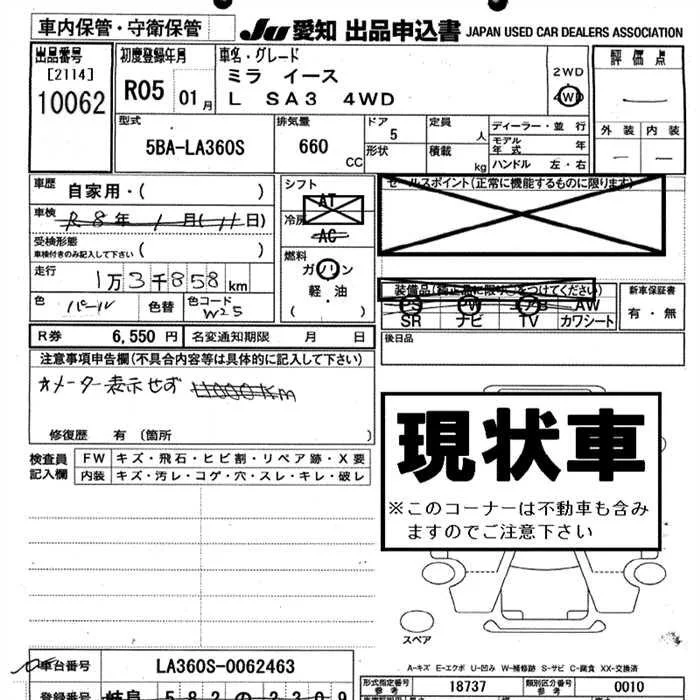 車内保管・守衛保管 JU 愛知 出品申込書 JAPAN USED CAR DEALERS ASSOCIATION
出品番号 初度登録年月 車名・グレード 評価点
[2114] ミラ イース 2WD
10062 R05 01月 L SA3 4WD 4WD
外装 内装
型式 排気量 ドア 定員 ディーラー・並行
5BA-LA360S 660 CC 5 人 モデル年式 年
形状 積載 kg ハンドル 左・右
車歴 自家用・( ) シフト セールスポイント(正常に機能するものに限ります)
AT
車検 R 8年 1月(11日) 冷房
AC
受検形態
車検付きのみ記入して下さい ( ) 燃料
走行 1万3千858km ガソリン
軽・油
( )
装備品(純正品に限り○をつけてください) 新車保証書
PS PW AB AW 有・無
色 パール 色替 色コード W25 SR ナビ TV カワシート
R券 6,550円 名変通知期限 月 日 後日品
注意事項申告欄(不具合内容等は具体的に記入して下さい)
オメーター表示せず 11000Km
修復歴 有 〔箇所 〕
現状車
※このコーナーは不動車も含み
ますのでご注意下さい
検査員 FW キズ・飛石・ヒビ割・リペア跡・X要
記入欄 内装 キズ・汚レ・コゲ・穴・スレ・キレ・破レ
スペア
A-キズ E-エクボ U-凹み W-補修跡 S-サビ C-腐食 XX-交換済
車台番号 LA360S-0062463
形式指定番号 参考 18737 類別区分番号 参考 0010
登録番号 岐阜 582の2309